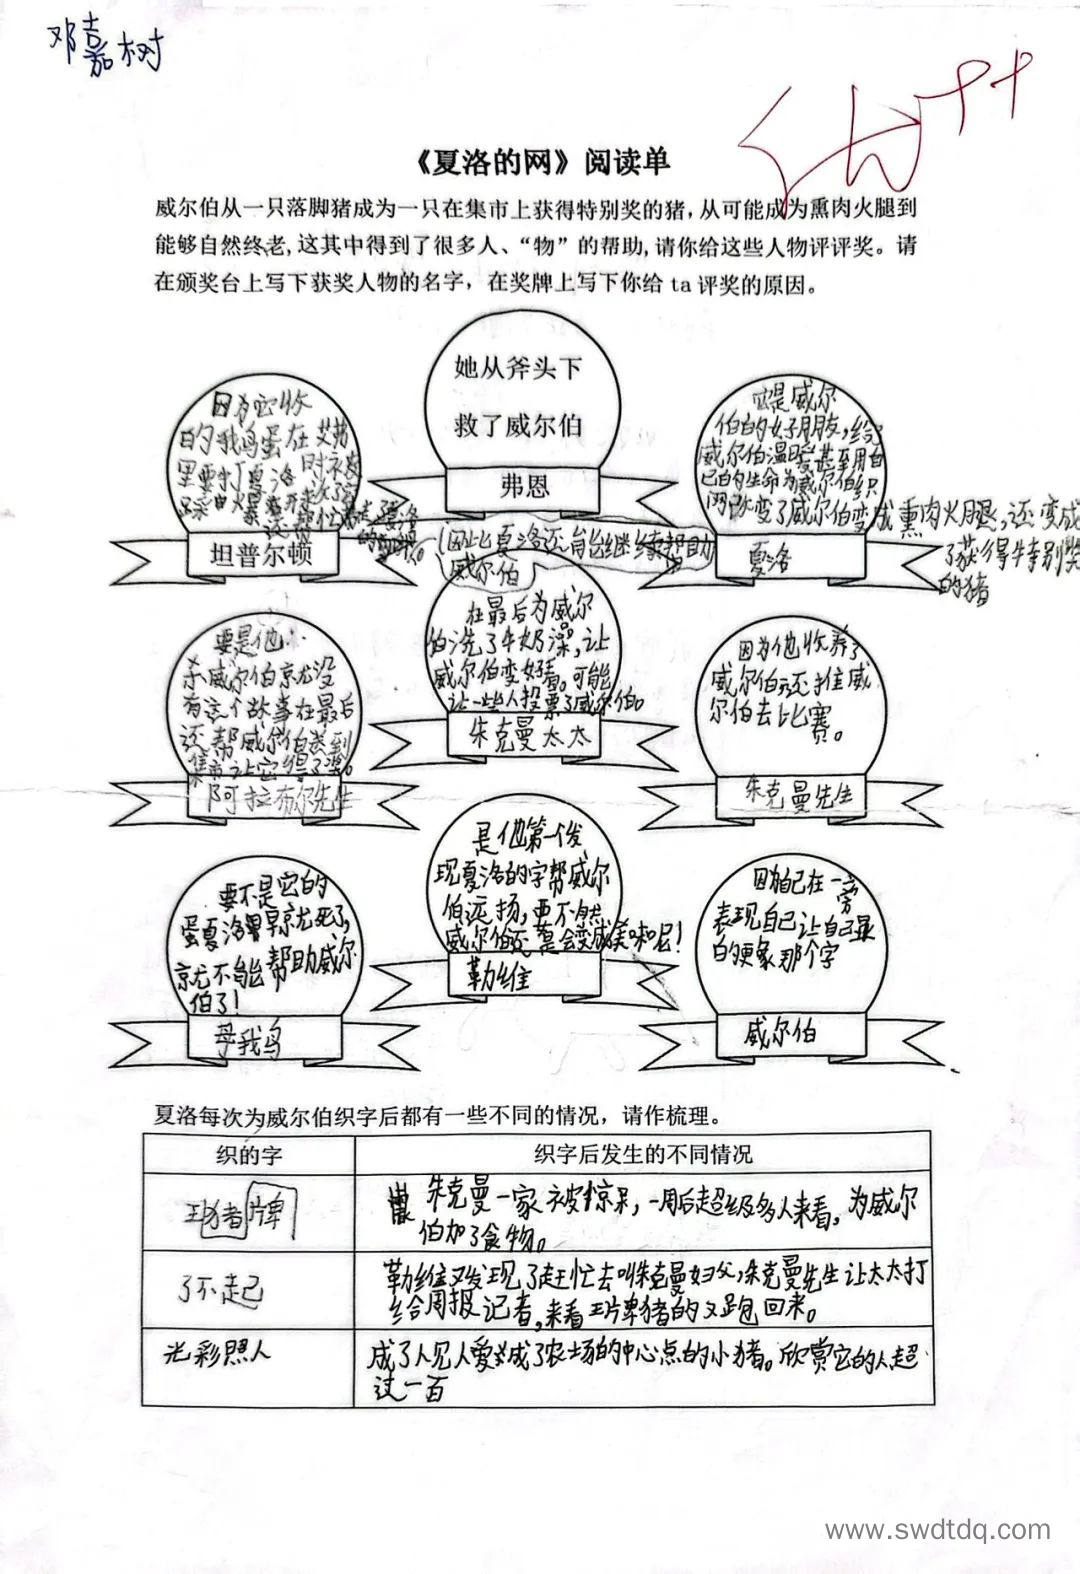 邓嘉树
《夏洛的网》阅读单
威尔伯从一只落脚猪成为一只在集市上获得特别奖的猪，从可能成为熏肉火腿到
能够自然终老，这其中得到了很多人、“物”的帮助，请你给这些人物评评奖。请
在颁奖台上写下获奖人物的名字，在奖牌上写下你给 ta 评奖的原因。
因为它收
的鹅蛋在艾弗
里要打夏洛时
坦普尔顿
她从斧头下
救了威尔伯
弗恩
它是威尔
伯的好朋友，给
威尔伯温暖甚至用自
己的生命为威尔伯织
网改变了威尔伯变成熏肉火腿，还变成
了获得特别奖
的猪
夏洛
要是他
杀威尔伯就没
有这个故事在最后
还帮威尔伯送到
集市让它得了奖。
阿拉布尔先生
因此夏洛还能继续帮助
威尔伯
在最后为威尔
伯洗了牛奶澡，让
威尔伯变好看。可能
让一些人投票了威尔伯。
朱克曼太太
因为他收养了
威尔伯还推威
尔伯去比赛。
朱克曼先生
要不是它的
蛋夏洛早就死了，
就不能帮助威尔
伯了！
母鹅
是他第一个发
现夏洛的字帮威尔
伯远扬，要不然
威尔伯还是会变成美味呢！
勒维
因为自己在一旁
表现自己让自己显
的更象那个字
威尔伯
夏洛每次为威尔伯织字后都有一些不同的情况，请作梳理。
织的字
织字后发生的不同情况
王牌猪
朱克曼一家被惊呆，一周后超级多人来看，为威尔
伯加了食物。
了不起
勒维又发现了赶忙去叫朱克曼妇父，朱克曼先生让太太打
给周报记者，来看王牌猪的又跑回来。
光彩照人
成了人见人爱成了农场的中心点的小猪。欣赏它的人超
过一百
www.swdtdq.com